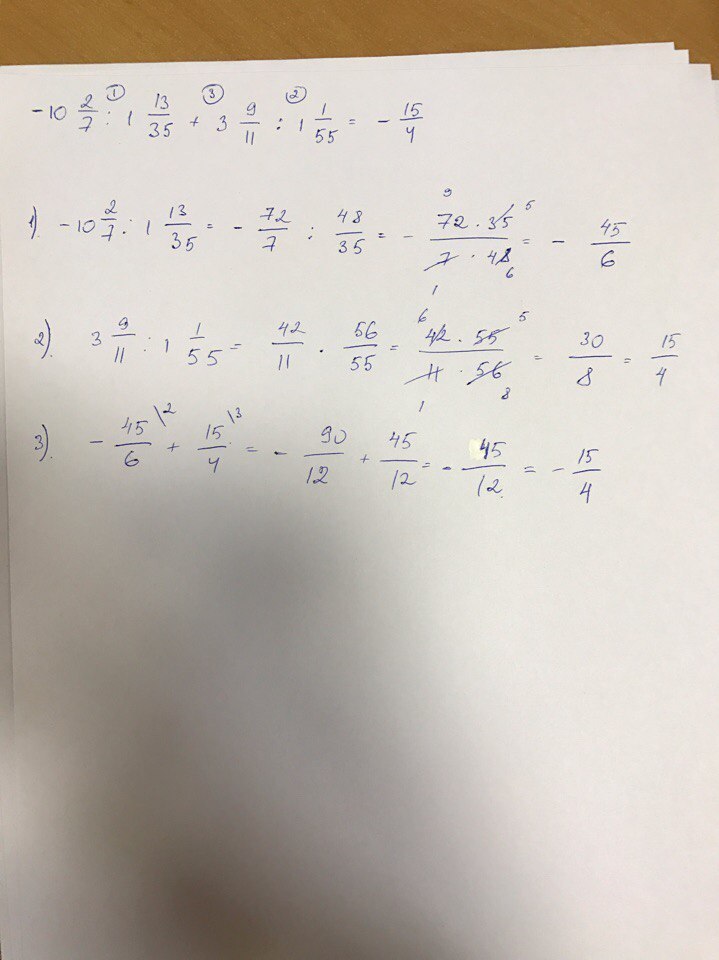 -10 2/7 : 1 13/35 + 3 9/11 : 1 1/55 = - 15/4
① ③ ②
1). -10 2/7 : 1 13/35 = - 72/7 : 48/35 = - 72·35/7·48 = - 45/6
9 5 1 6
2). 3 9/11 : 1 1/55 = 42/11 · 56/55 = 42·55/11·56 = 30/8 = 15/4
6 5 1 8
3). - 45/6 \2 + 15/4 \3 = - 90/12 + 45/12 = - 45/12 = - 15/4